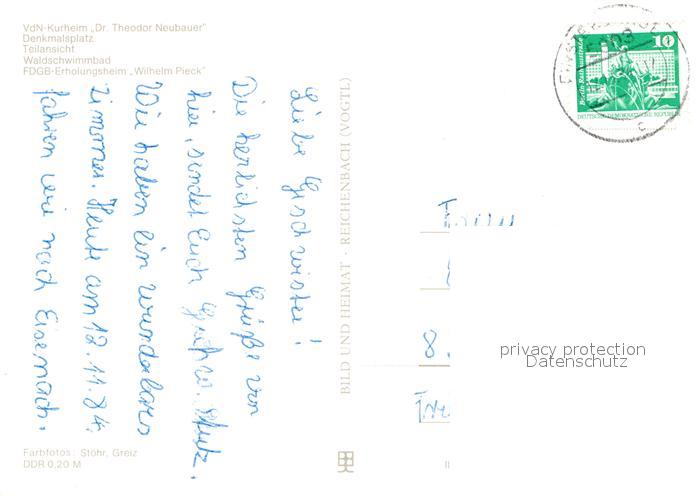 VdN-Kurheim „Dr. Theodor Neubauer"
Denkmalsplatz
Teilansicht
Waldschwimmbad
FDGB-Erholungsheim „Wilhelm Pieck"
Liebe Geschwister!
Die herlichsten Grüße von
hier, sendet Euch
Wir haben ein wunderbares
Zimmer. Heute am 12.11.84.
fahren wir nach Eisenach.
Farbfotos: Stöhr, Greiz
DDR 0,20 M
BILD UND HEIMAT · REICHENBACH (VOGTL)
10
Berlin, Rathausstraße
DEUTSCHE DEMOKRATISCHE REPUBLIK
8.
privacy protection
Datenschutz